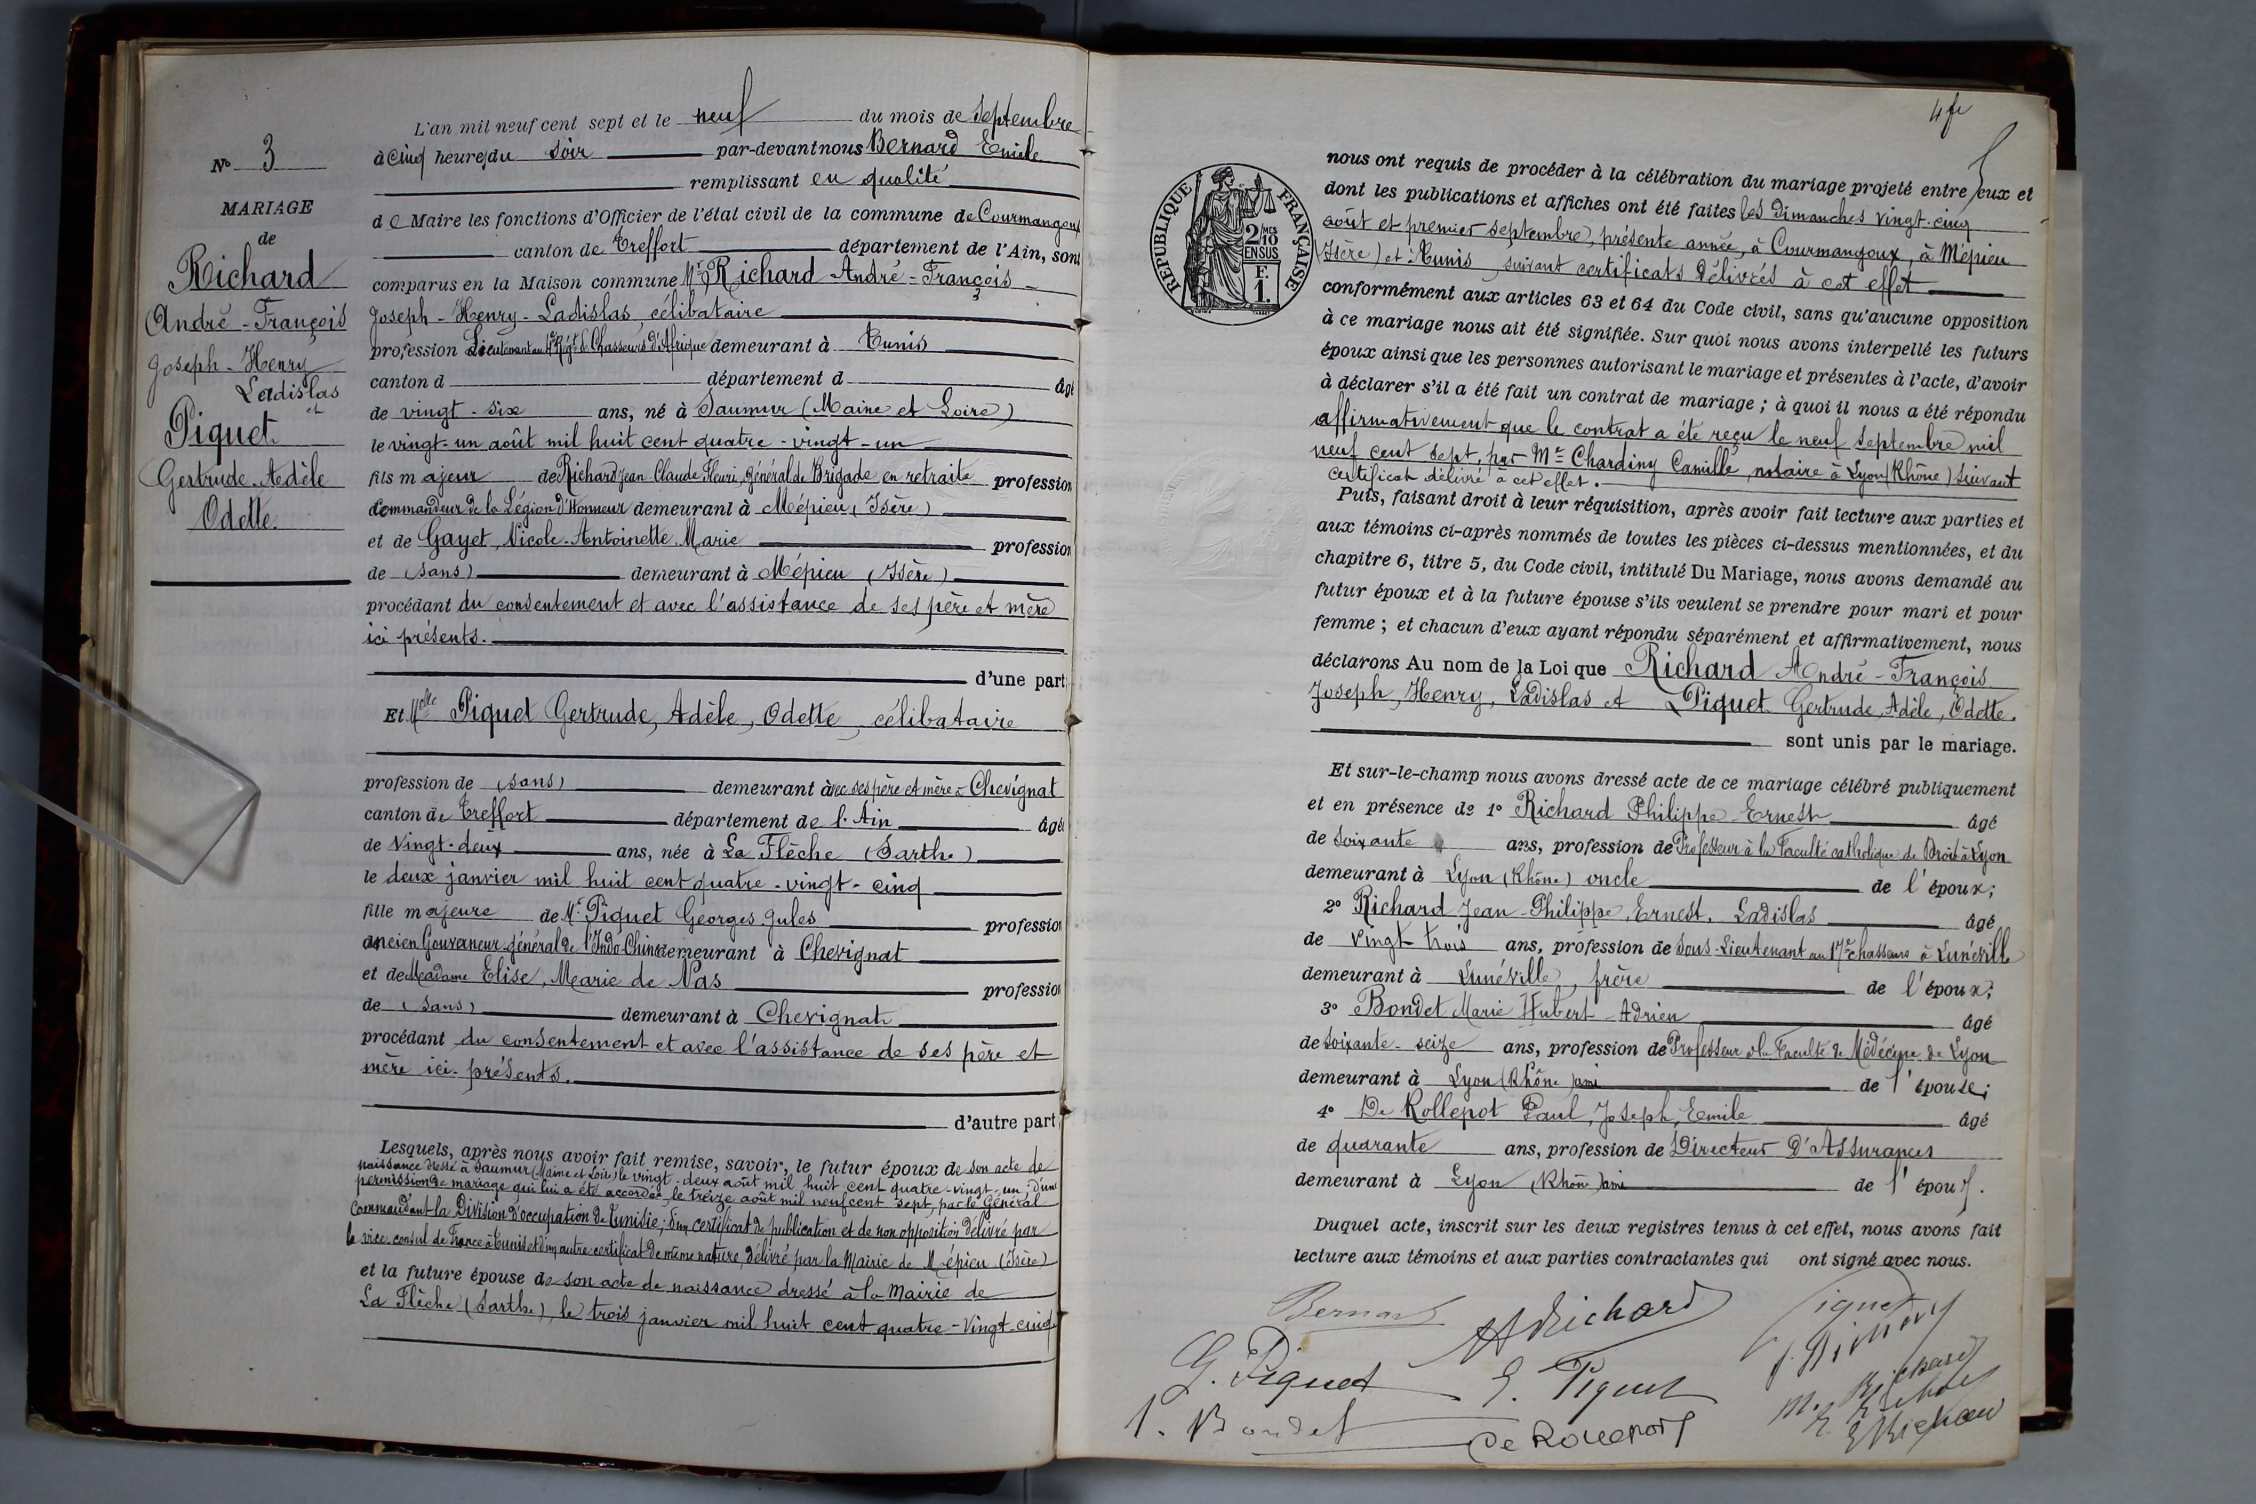 N° 3
MARIAGE
de
Richard
André-François
Joseph-Henry
Ladislas
et
Piquet
Gertrude Adèle
Odette.
L'an mil neuf cent sept et le neuf du mois de septembre
à cinq heures du soir par-devant nous Bernard Emile
remplissant en qualité
de Maire les fonctions d'Officier de l'état civil de la commune de Courmangoux
canton de Treffort département de l'Ain, sont
comparus en la Maison commune Mr Richard André-François
Joseph-Henry-Ladislas, célibataire
profession Lieutenant au 4e Régt de Chasseurs d'Afrique demeurant à Tunis
canton d département d âgé
de vingt-six ans, né à Saumur (Maine et Loire)
le vingt-un août mil huit cent quatre-vingt-un
fils majeur de Richard Jean Claude Fleuri, général de Brigade en retraite profession
Commandeur de la Légion d'Honneur demeurant à Mépieu (Isère)
et de Gayet, Nicole-Antoinette Marie profession
de (sans) demeurant à Mépieu (Isère)
procédant du consentement et avec l'assistance de ses père et mère
ici présents.
d'une part
Et Melle Piquet Gertrude, Adèle, Odette, célibataire
profession de (sans) demeurant avec ses père et mère à Chevignat
canton de Treffort département de l'Ain âgée
de vingt-deux ans, née à La Flèche (Sarthe)
le deux janvier mil huit cent quatre-vingt-cinq
fille majeure de Mr Piquet Georges Jules profession
ancien Gouverneur général de l'Indo-Chine demeurant à Chevignat
et de Madame Elise, Marie de Nas profession
de (sans) demeurant à Chevignat
procédant du consentement et avec l'assistance de ses père et
mère ici présents.
d'autre part
Lesquels, après nous avoir fait remise, savoir, le futur époux de son acte de
naissance dressé à Saumur (Maine et Loire) le vingt-deux août mil huit cent quatre-vingt-un; d'une
permission de mariage qui lui a été accordée le treize août mil neuf cent sept, par le Général
Commandant la Division d'occupation de Tunisie; d'un certificat de publication et de non opposition délivré par
le vice consul de France à Tunis et d'un autre certificat de même nature, délivré par la Mairie de Mépieu (Isère)
et la future épouse de son acte de naissance dressé à la Mairie de
La Flèche (Sarthe), le trois janvier mil huit cent quatre-vingt-cinq
4 fe
RÉPUBLIQUE FRANÇAISE
2/10 MES
EN SUS
F.
1.
nous ont requis de procéder à la célébration du mariage projeté entre eux et
dont les publications et affiches ont été faites les dimanches vingt-cinq
août et premier septembre, présente année, à Courmangoux, à Mépieu
(Isère) et à Tunis, suivant certificats délivrés à cet effet
conformément aux articles 63 et 64 du Code civil, sans qu'aucune opposition
à ce mariage nous ait été signifiée. Sur quoi nous avons interpellé les futurs
époux ainsi que les personnes autorisant le mariage et présentes à l'acte, d'avoir
à déclarer s'il a été fait un contrat de mariage ; à quoi il nous a été répondu
affirmativement que le contrat a été reçu le neuf septembre mil
neuf cent sept, par Me Chardiny Camille, notaire à Lyon (Rhône) suivant
certificat délivré à cet effet.
Puis, faisant droit à leur réquisition, après avoir fait lecture aux parties et
aux témoins ci-après nommés de toutes les pièces ci-dessus mentionnées, et du
chapitre 6, titre 5, du Code civil, intitulé Du Mariage, nous avons demandé au
futur époux et à la future épouse s'ils veulent se prendre pour mari et pour
femme ; et chacun d'eux ayant répondu séparément et affirmativement, nous
déclarons Au nom de la Loi que Richard André-François
Joseph, Henry, Ladislas et Piquet Gertrude, Adèle, Odette.
sont unis par le mariage.
Et sur-le-champ nous avons dressé acte de ce mariage célébré publiquement
et en présence de 1° Richard Philippe-Ernest âgé
de soixante ans, profession de Professeur à la Faculté catholique de Droit à Lyon
demeurant à Lyon (Rhône) oncle de l'époux;
2° Richard Jean-Philippe, Ernest, Ladislas âgé
de vingt-trois ans, profession de Sous-Lieutenant au 17e chasseurs à Lunéville
demeurant à Lunéville, frère de l'époux;
3° Bondet Marie Hubert-Adrien âgé
de soixante-seize ans, profession de Professeur à la Faculté de Médecine de Lyon
demeurant à Lyon (Rhône) ami de l'épouse;
4° De Rollepot Paul, Joseph, Emile âgé
de quarante ans, profession de Directeur d'Assurances
demeurant à Lyon (Rhône) ami de l'époux.
Duquel acte, inscrit sur les deux registres tenus à cet effet, nous avons fait
lecture aux témoins et aux parties contractantes qui ont signé avec nous.
Bernard A Richard Piquet
G. Piquet E. Piquet
M. Richard
A. Bondet De Rollepot E Richard